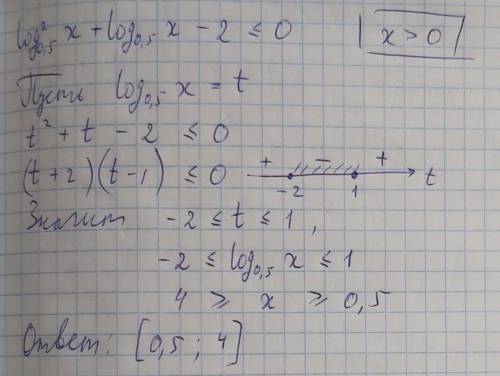 log²₀,₅ x + log₀,₅ x - 2 ≤ 0 x > 0
Пусть log₀,₅ x = t
t² + t - 2 ≤ 0
(t+2)(t-1) ≤ 0 + - + -2 1 t
Значит -2 ≤ t ≤ 1,
-2 ≤ log₀,₅ x ≤ 1
4 ≥ x ≥ 0,5
Ответ: [0,5; 4]